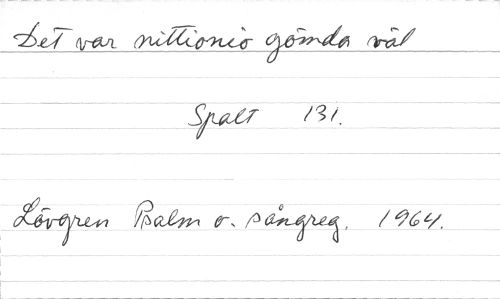 Det var nittionio gömda väl
Spalt 131.
Lövgren Psalm o. sångreg. 1964.